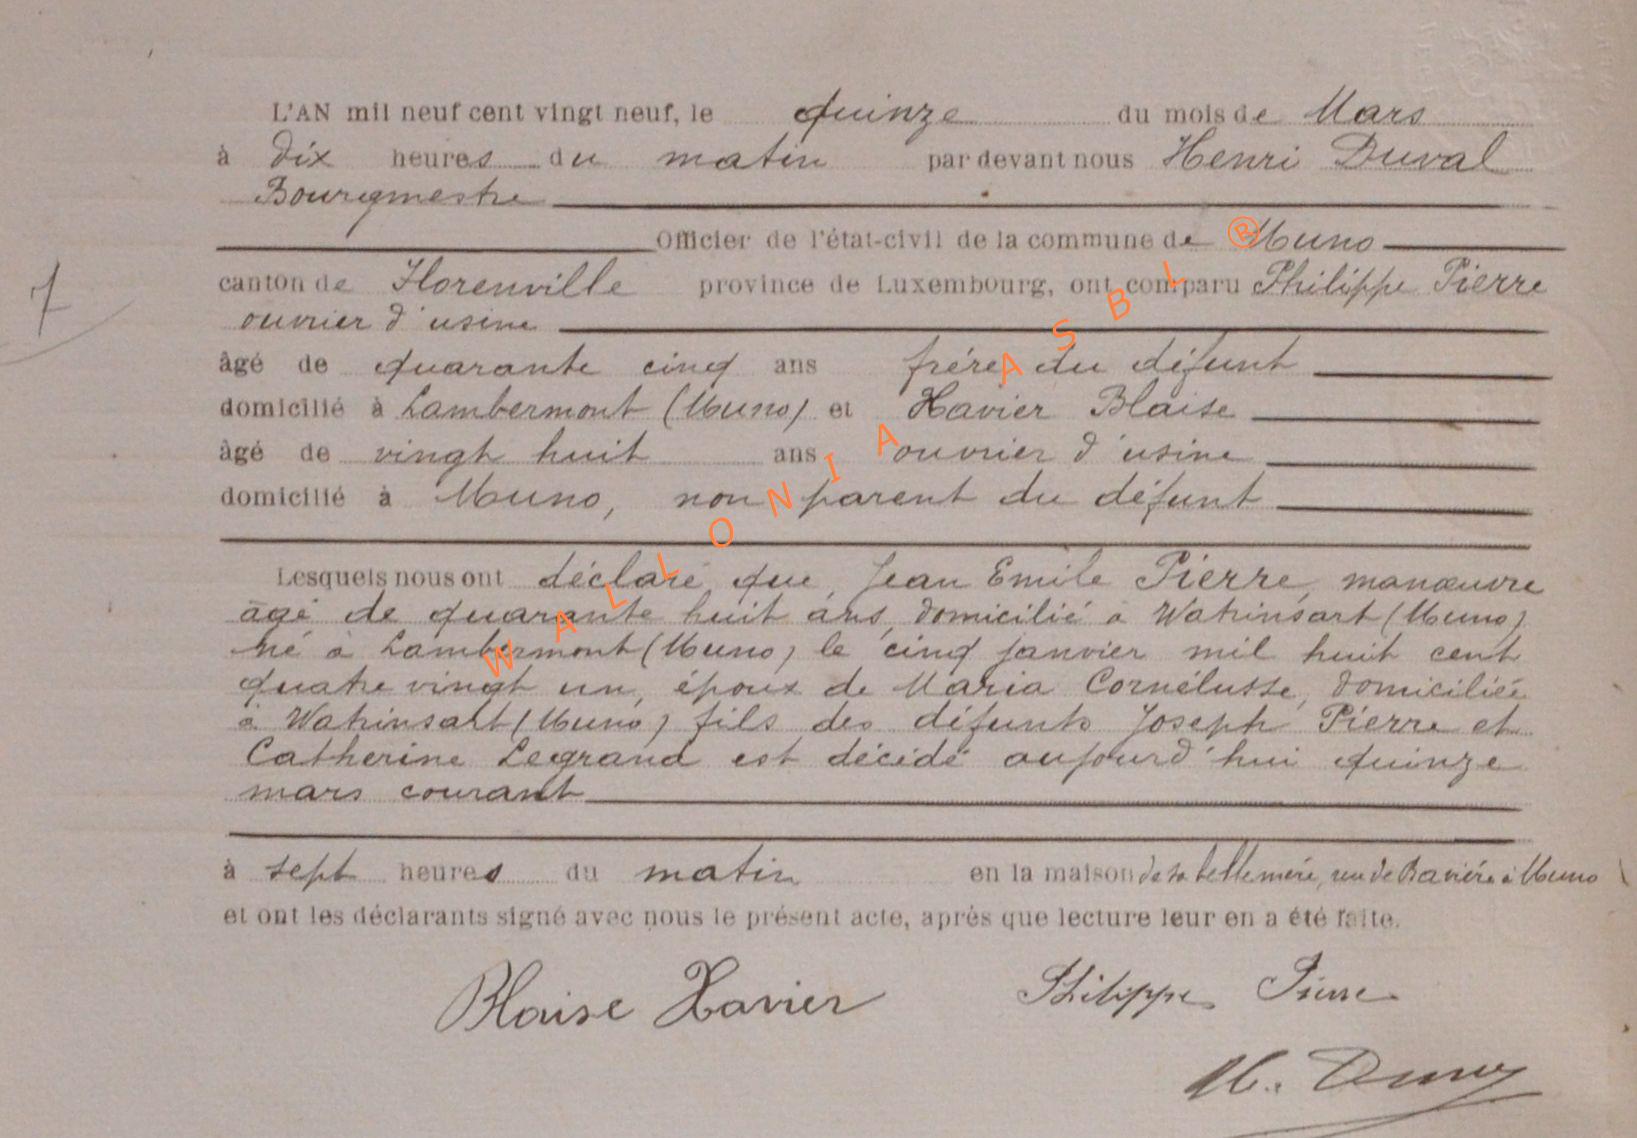 L'AN mil neuf cent vingt neuf, le quinze du mois de Mars
à dix heures du matin par devant nous Henri Duval
Bourgmestre
Officier de l'état-civil de la commune de Muno
canton de Florenville province de Luxembourg, ont comparu Philippe Pierre
7
ouvrier d'usine
âgé de quarante cinq ans frére du défunt
domicilié à Lambermont (Muno) et Xavier Blaise
âgé de vingt huit ans ouvrier d'usine
domicilié à Muno, non parent du défunt
Lesquels nous ont déclaré que, Jean Emile Pierre, manœuvre
âgé de quarante huit ans, domicilié à Watrinsart (Muno)
né à Lambermont (Muno) le cinq janvier mil huit cent
quatre vingt un, époux de Maria Cornélusse, domiciliée
à Watrinsart (Muno) fils des défunts Joseph Pierre et
Catherine Legrand est décédé aujourd'hui quinze
mars courant
à sept heures du matin en la maison de sa belle mére, rue de Baviére à Muno
et ont les déclarants signé avec nous le présent acte, après que lecture leur en a été faite.
Blaise Xavier Philippe Pierre
H. Duval
WALLONIA ASBL ®